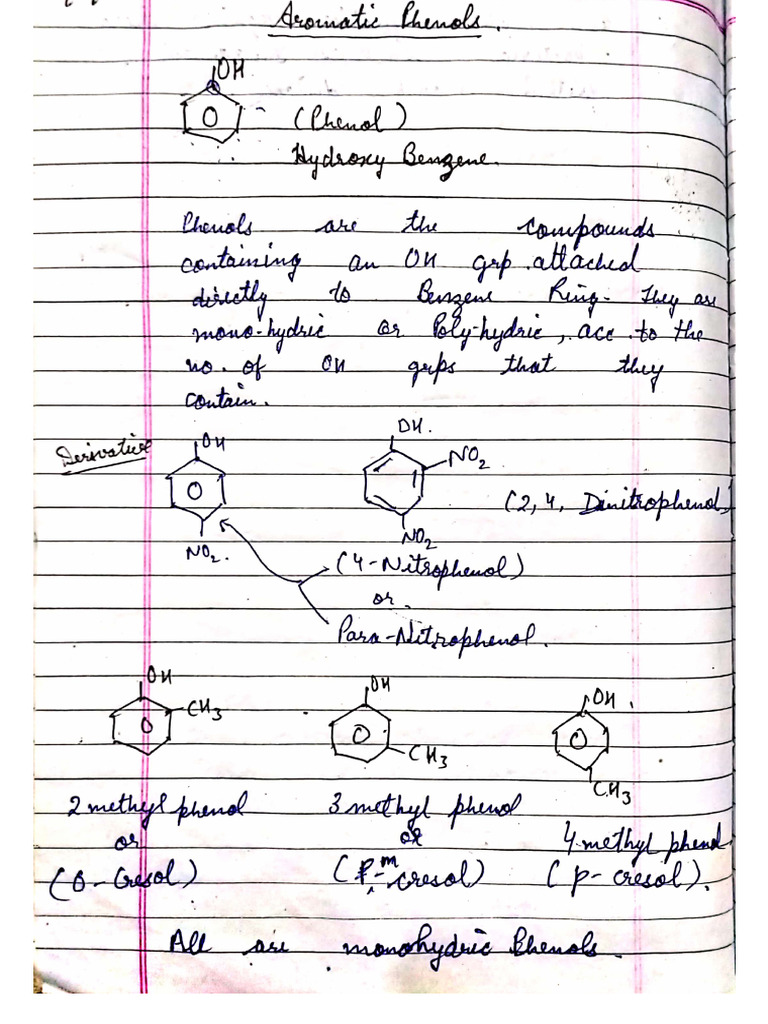 Aromatic Phenols.
OH
(Phenol)
Hydroxy Benzene.
Phenols are the compounds
containing an OH grp. attached
directly to Benzene Ring. They are
mono-hydric or Poly-hydric, acc. to the
no. of OH grps that they
contain.
Derivative
OH
NO2.
OH.
NO2
NO2
(2,4, Dinitrophenol)
(4-Nitrophenol)
or.
Para-Nitrophenol.
OH
CH3
OH
CH3
OH.
CH3
2 methyl phenol
or
(O-Cresol)
3 methyl phenol
or
(m-cresol)
4 methyl phenol
(p-cresol).
All are monohydric Phenols.